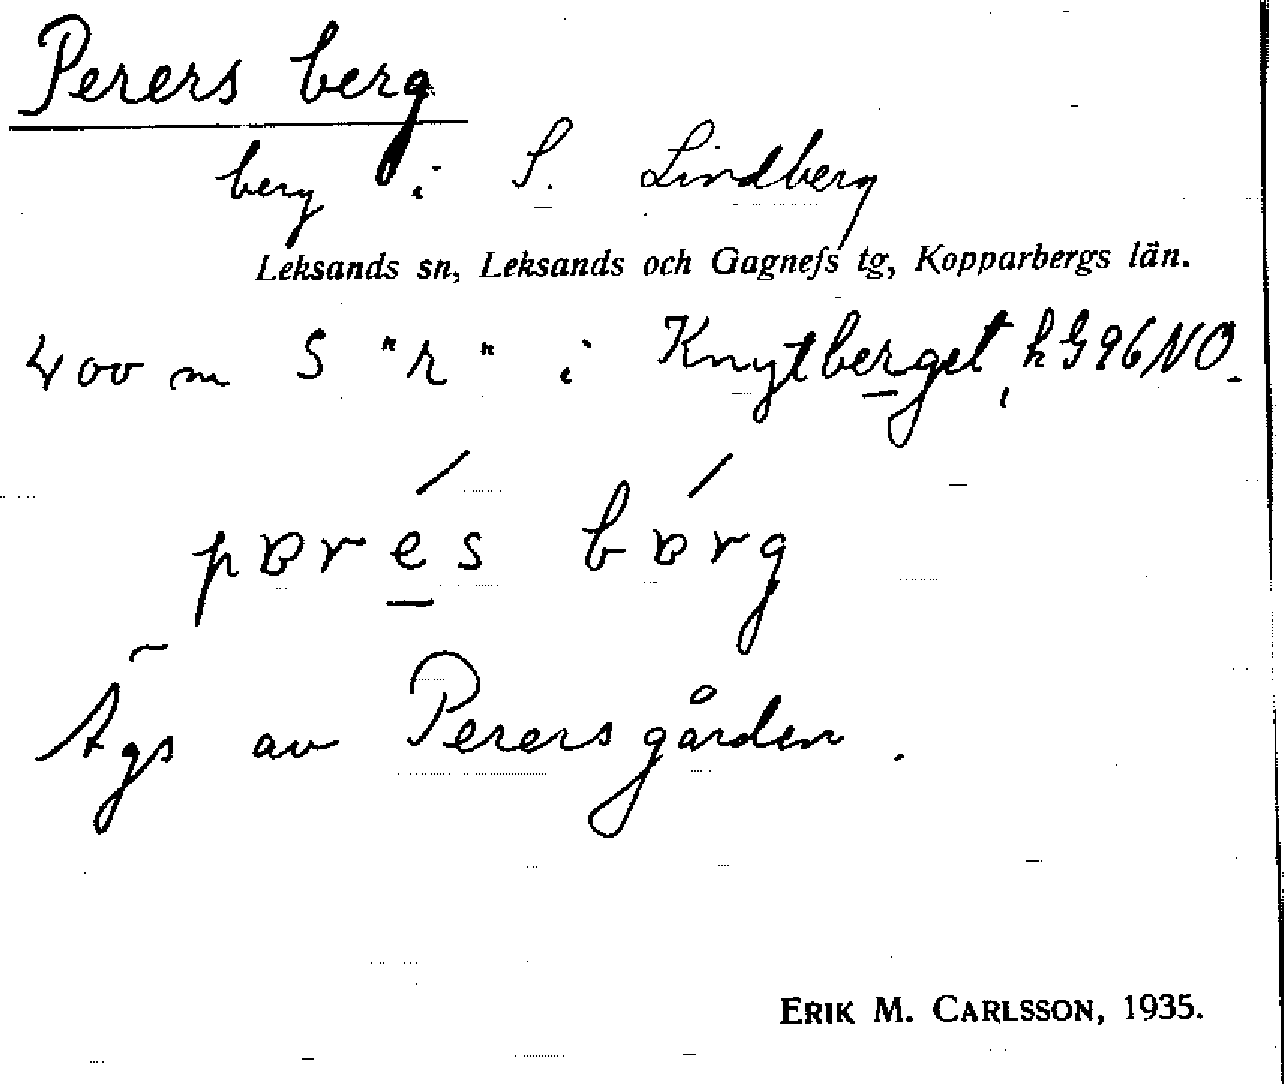 Perers berg
berg i S. Lindberg
Leksands sn, Leksands och Gagnefs tg, Kopparbergs län.
400 m S "r" i Knytberget, kG96NO.
pɐrés bɐrg
Ägs av Perersgården.
ERIK M. CARLSSON, 1935.